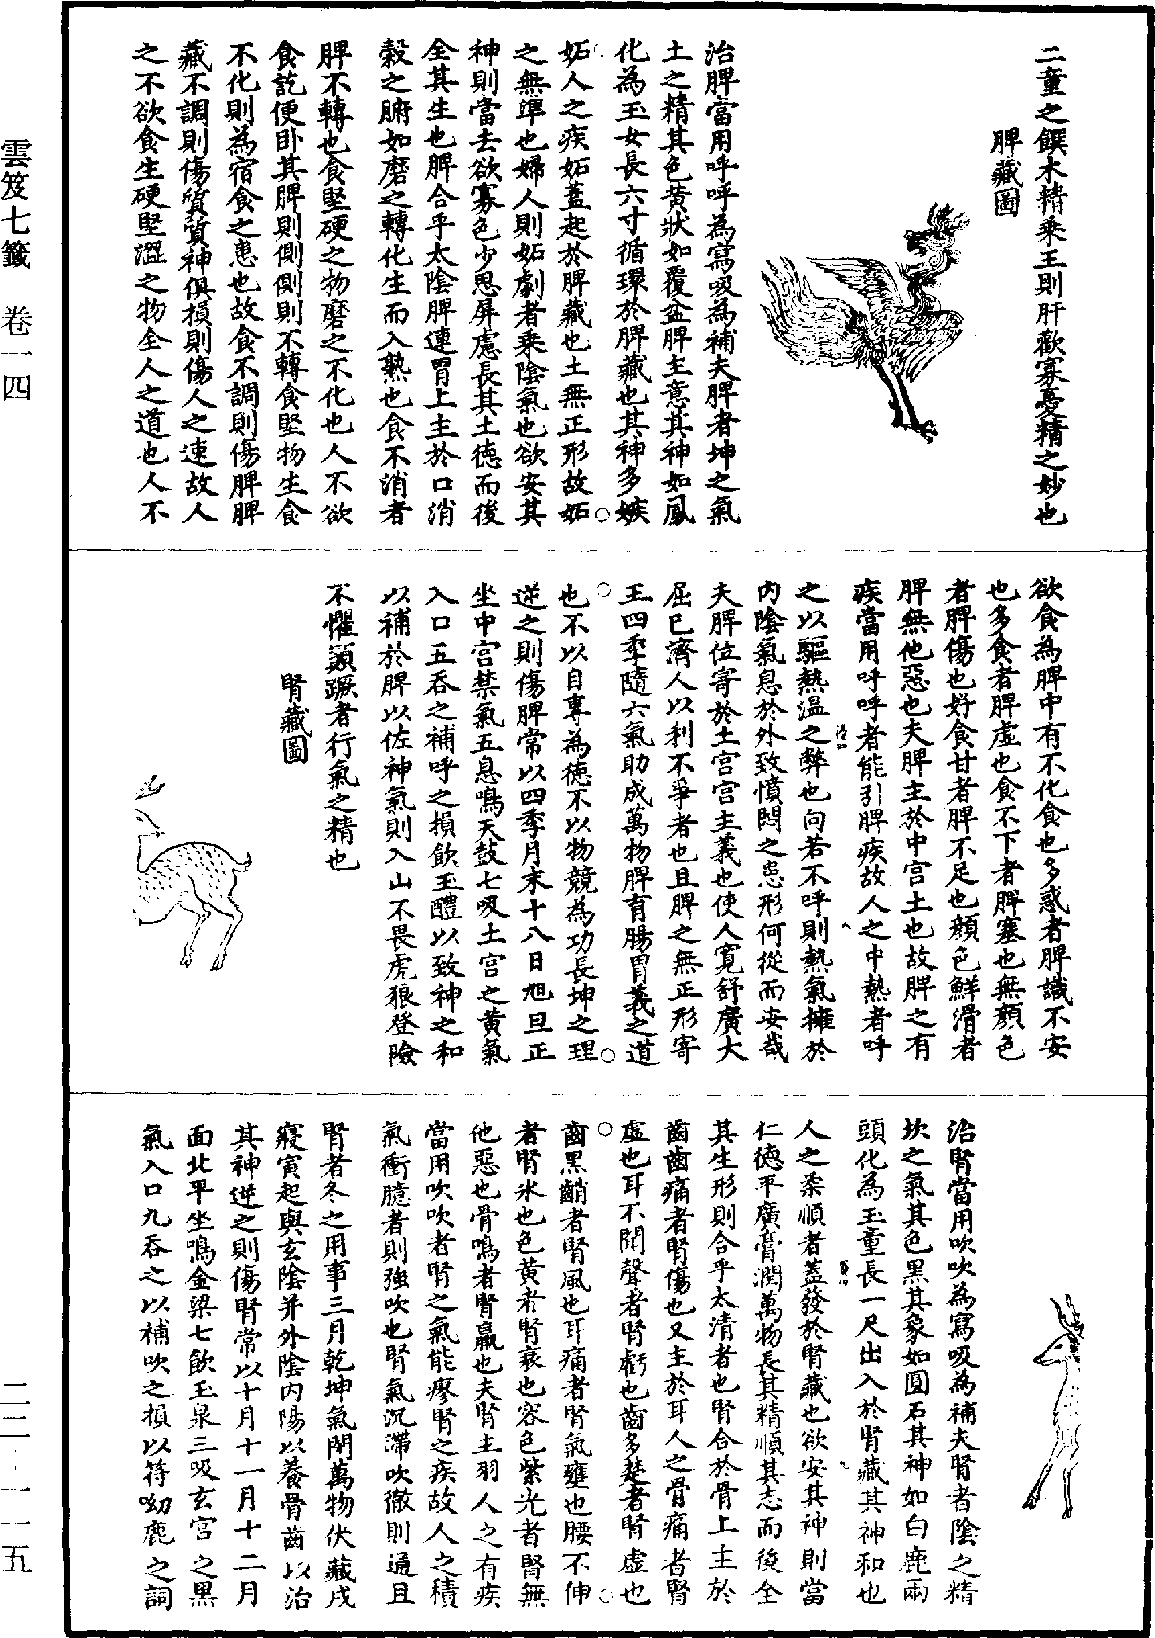 二童之饌木精乘王則肝歡寡憂精之妙也
脾藏圖
治脾當用呼呼為寫吸為補夫脾者坤之氣
土之精其色黃狀如覆盆脾主意其神如鳳
化為玉女長六寸循環於脾藏也其神多嫉
妬人之疾妬蓋起於脾藏也土無正形故妬
之無準也婦人則妬劇者乘陰氣也欲安其
神則當去欲寡色少思屏慮長其土德而後
全其生也脾合乎太陰脾連胃上主於口消
穀之腑如磨之轉化生而入熟也食不消者
脾不轉也食堅硬之物磨之不化也人不欲
食訖便卧其脾則側側則不轉食堅物生食
不化則為宿食之患也故食不調則傷脾脾
藏不調則傷質質神俱損則傷人之速故人
之不欲食生硬堅澀之物全人之道也人不
欲食為脾中有不化食也多惑者脾識不安
也多食者脾虛也食不下者脾塞也無顏色
者脾傷也好食甘者脾不足也顏色鮮滑者
脾無他惡也夫脾主於中宮土也故脾之有
疾當用呼呼者能引脾疾故人之中熱者呼
之以驅熱温之弊也向若不呼則熱氣擁於
內陰氣息於外致憤悶之患形何從而安哉
夫脾位寄於土宮宮主義也使人寬舒廣大
屈己濟人以利不爭者也且脾之無正形寄
王四季隨六氣助成萬物脾育腸胃義之道
也不以自專為德不以物競為功長坤之理
逆之則傷脾常以四季月末十八日旭旦正
坐中宮禁氣五息鳴天鼓七吸土宮之黃氣
入口五吞之補呼之損飲玉醴以致神之和
以補於脾以佐神氣則入山不畏虎狼登險
不懼顛蹶者行氣之精也
腎藏圖
治腎當用吹吹為寫吸為補夫腎者陰之精
坎之氣其色黑其象如圓石其神如白鹿兩
頭化為玉童長一尺出入於腎藏其神和也
人之柔順者蓋發於腎藏也欲安其神則當
仁德平廣膏潤萬物長其精順其志而後全
其生形則合乎太清者也腎合於骨上主於
齒齒痛者腎傷也又主於耳人之骨痛者腎
虛也耳不聞聲者腎虧也齒多楚者腎虛也
齒黑齰者腎風也耳痛者腎氣壅也腰不伸
者腎冰也色黃者腎衰也容色紫光者腎無
他惡也骨鳴者腎羸也夫腎主羽人之有疾
當用吹吹者腎之氣能療腎之疾故人之積
氣衝臆者則強吹也腎氣沉滯吹徹則通且
腎者冬之用事三月乾坤氣閉萬物伏藏戌
寢寅起與玄陰并外陰內陽以養骨齒以治
其神逆之則傷腎常以十月十一月十二月
面北平坐鳴金梁七飲玉泉三吸玄宮之黑
氣入口九吞之以補吹之損以符呦鹿之詞
雲笈七籤 卷一四
二二-一一五